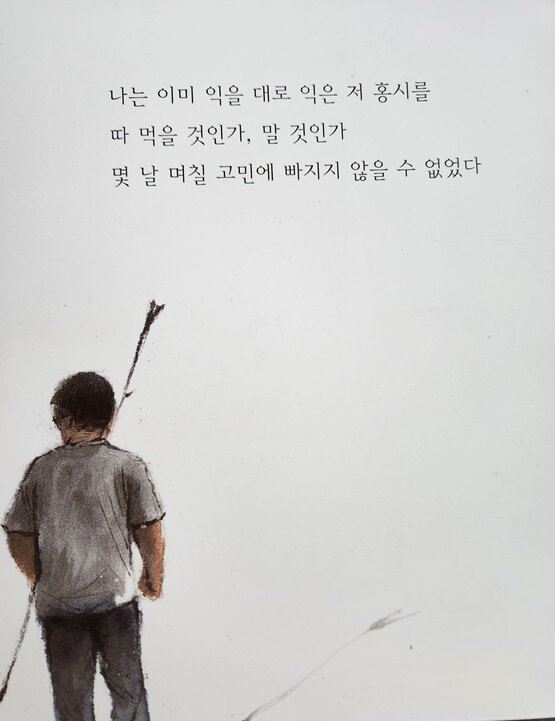 나는 이미 익을 대로 익은 저 홍시를
따 먹을 것인가, 말 것인가
몇 날 며칠 고민에 빠지지 않을 수 없었다